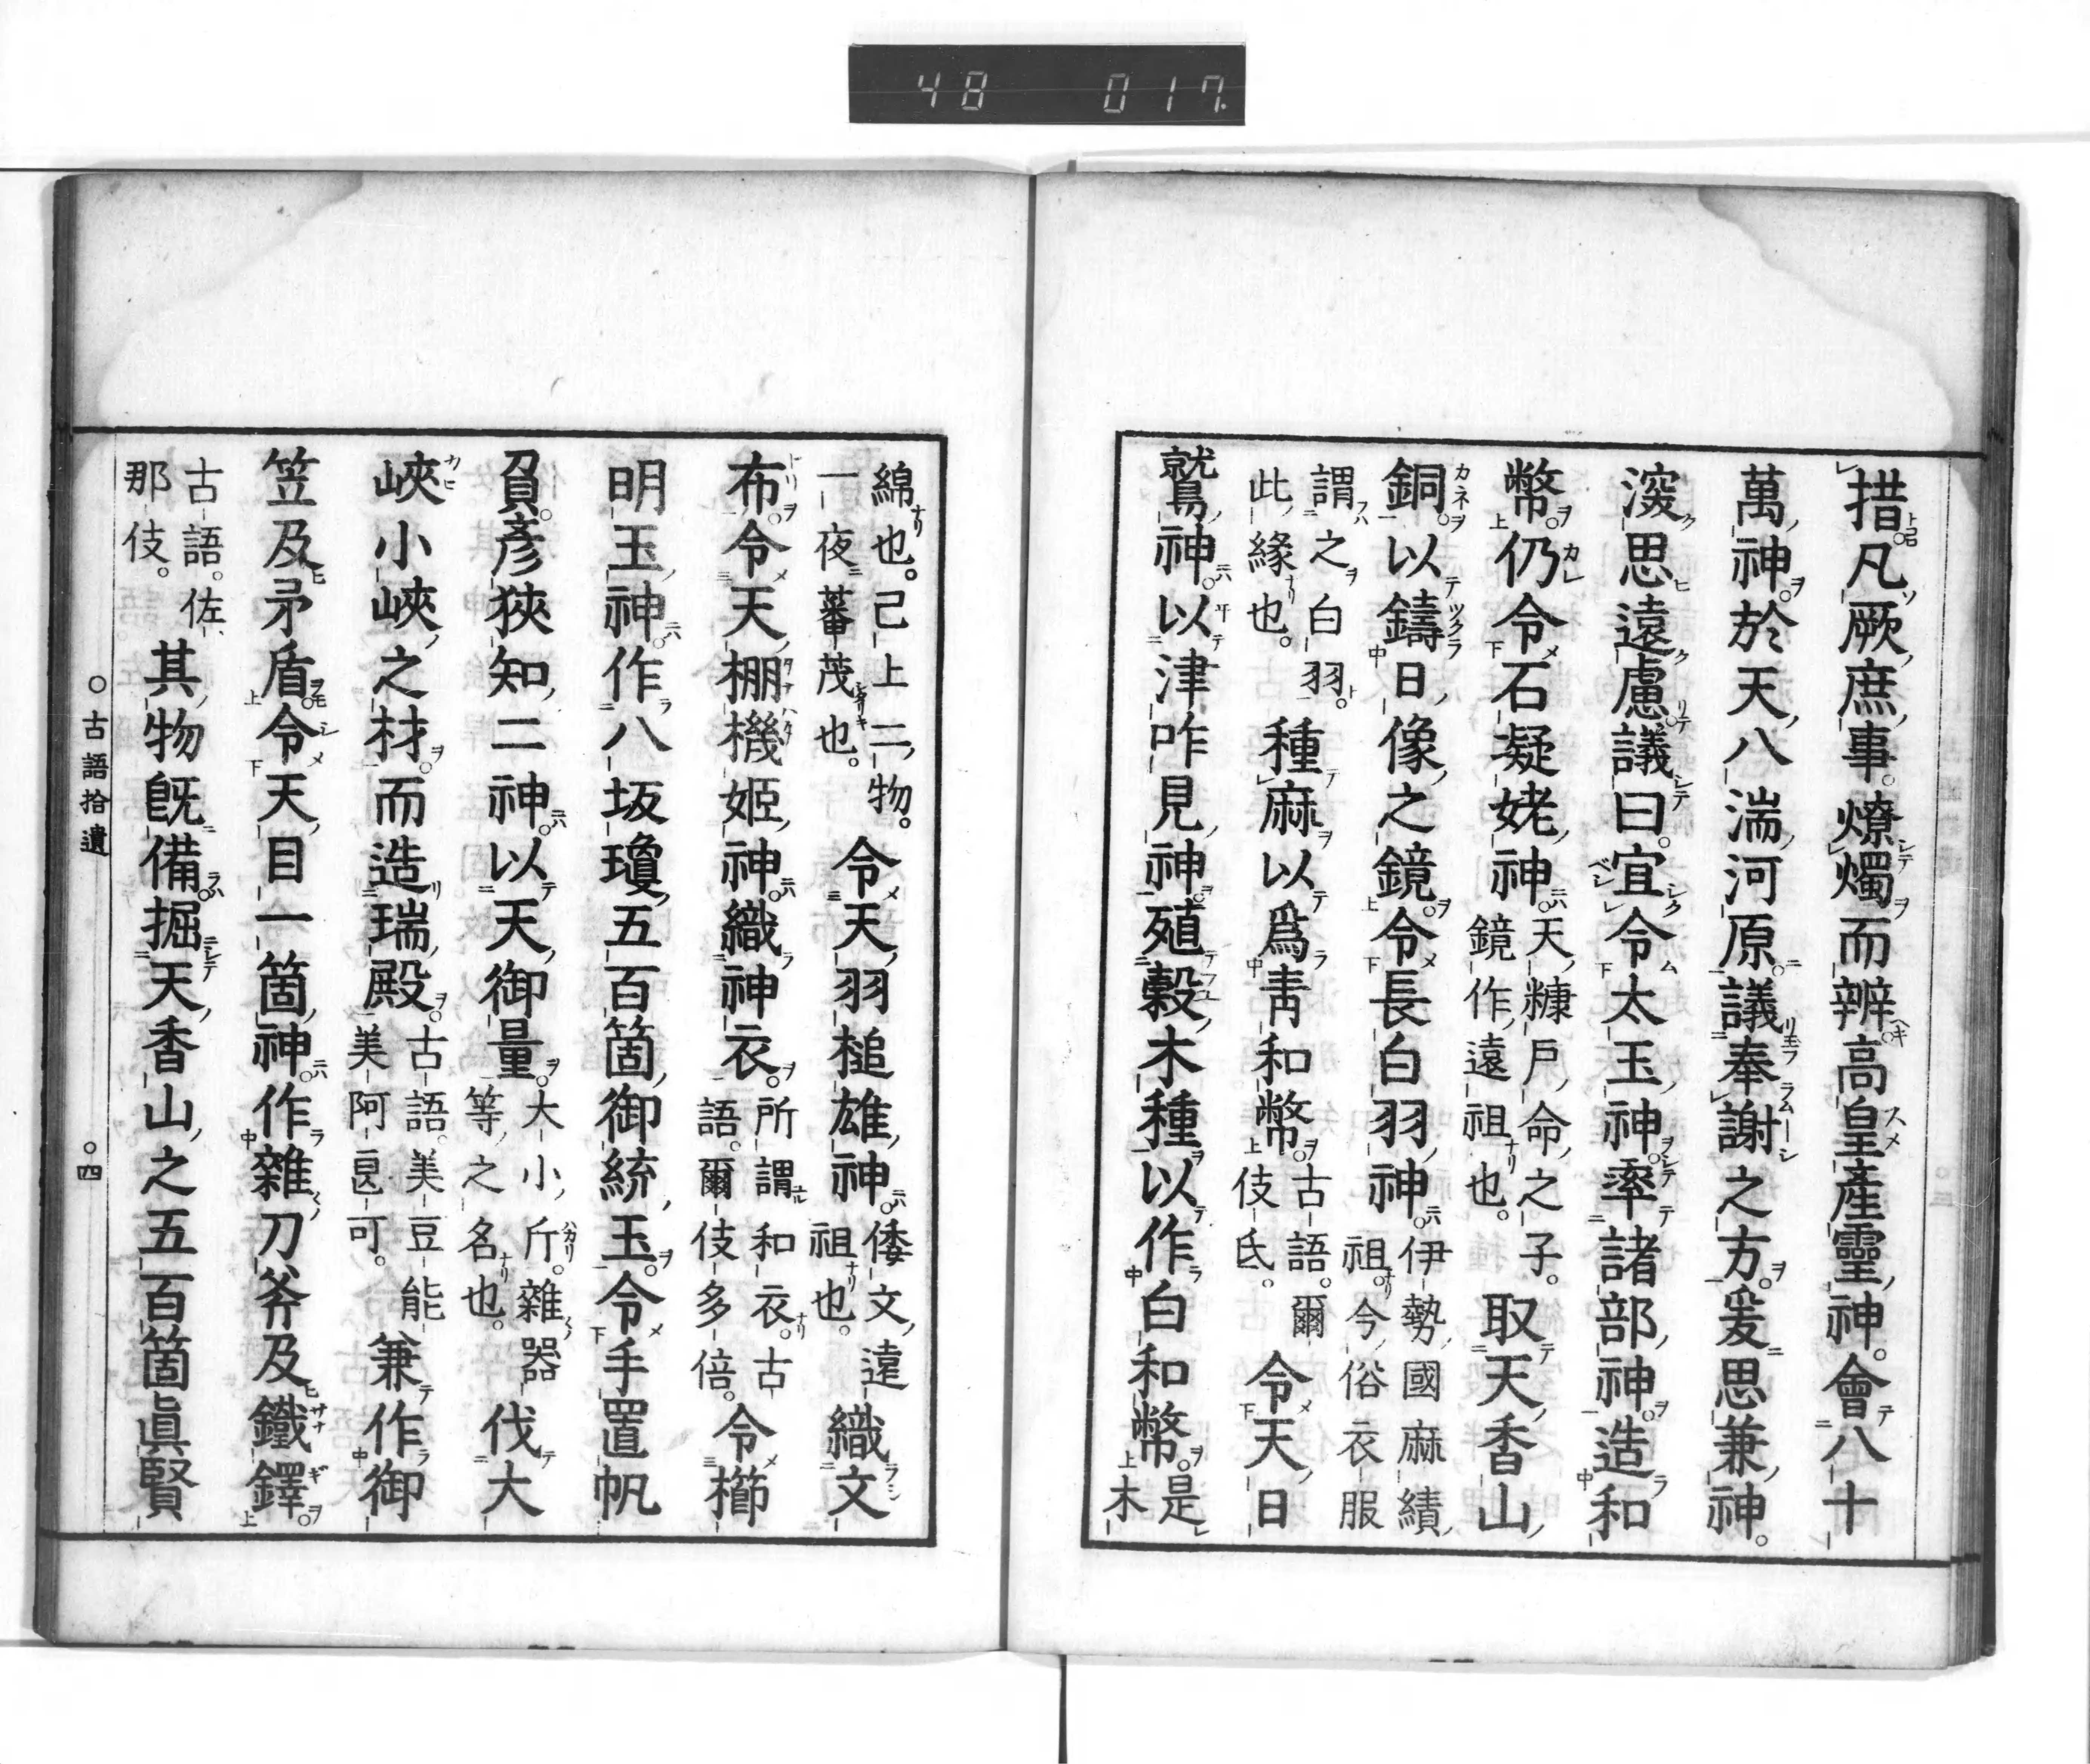 48 017.
措凡厥庶事燎燭而辨高皇產靈神會八十
萬神於天八湍河原議奉謝之方爰思兼神
深思遠慮議曰宜令太玉神率諸部神造和
幣仍令石凝姥神天糠戶命之子鏡作遠祖也取天香山
銅以鑄日像之鏡令長白羽神伊勢國麻績祖今俗衣服
謂之白羽此緣也種麻以爲青和幣古語爾伎氐令天日
鷲神以津咋見神殖穀木種以作白和幣是木
綿也已上二物一夜蕃茂也令天羽槌雄神倭文遠祖也織文
布令天棚機姬神織神衣所謂和衣古語爾伎多倍令櫛
明玉神作八坂瓊五百箇御統玉令手置帆
負彥狹知二神以天御量大小斤雜器等之名也伐大
峽小峽之材而造瑞殿古語美豆能美阿良可兼作御
笠及矛盾令天目一箇神作雜刀斧及鐵鐸
古語佐那伎其物既備掘天香山之五百箇眞賢
○古語拾遺 ○四